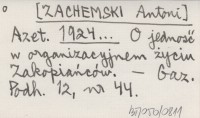 [ZACHEMSKI Antoni]
Azet. 1924... O jedność
w organizacyjnem życiu
Zakopiańców. — Gaz.
Podh. 12, nr 44.